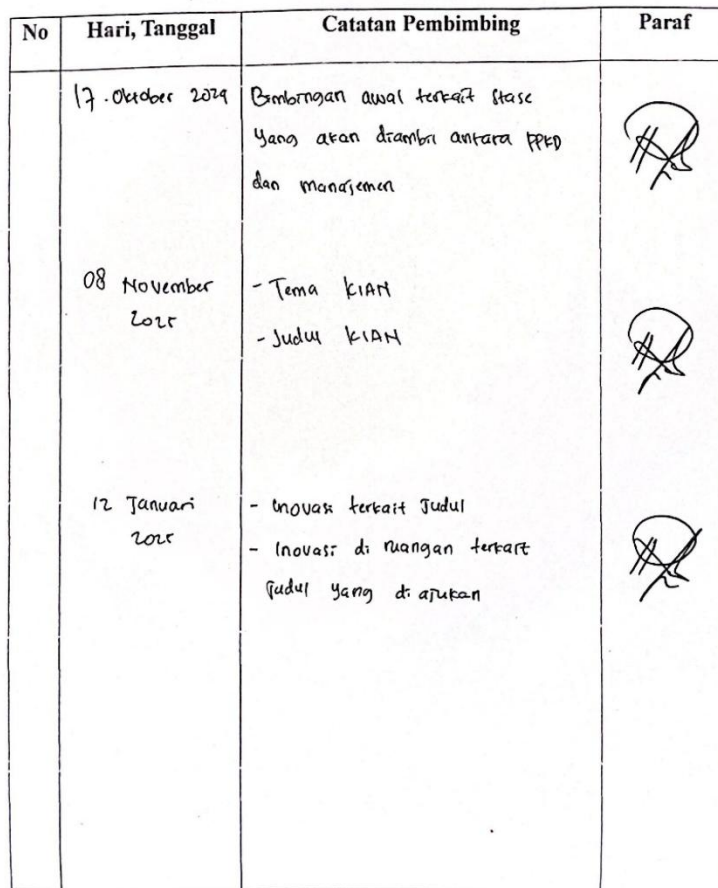 No Hari, Tanggal Catatan Pembimbing Paraf
17. Oktober 2024 Bimbingan awal terkait stase
yang akan diambil antara PPKD
dan manajemen
08 November - Tema KIAN
2025 - Judul KIAN
12 Januari - Inovasi terkait Judul
2025 - Inovasi di ruangan terkait
Judul yang di ajukan